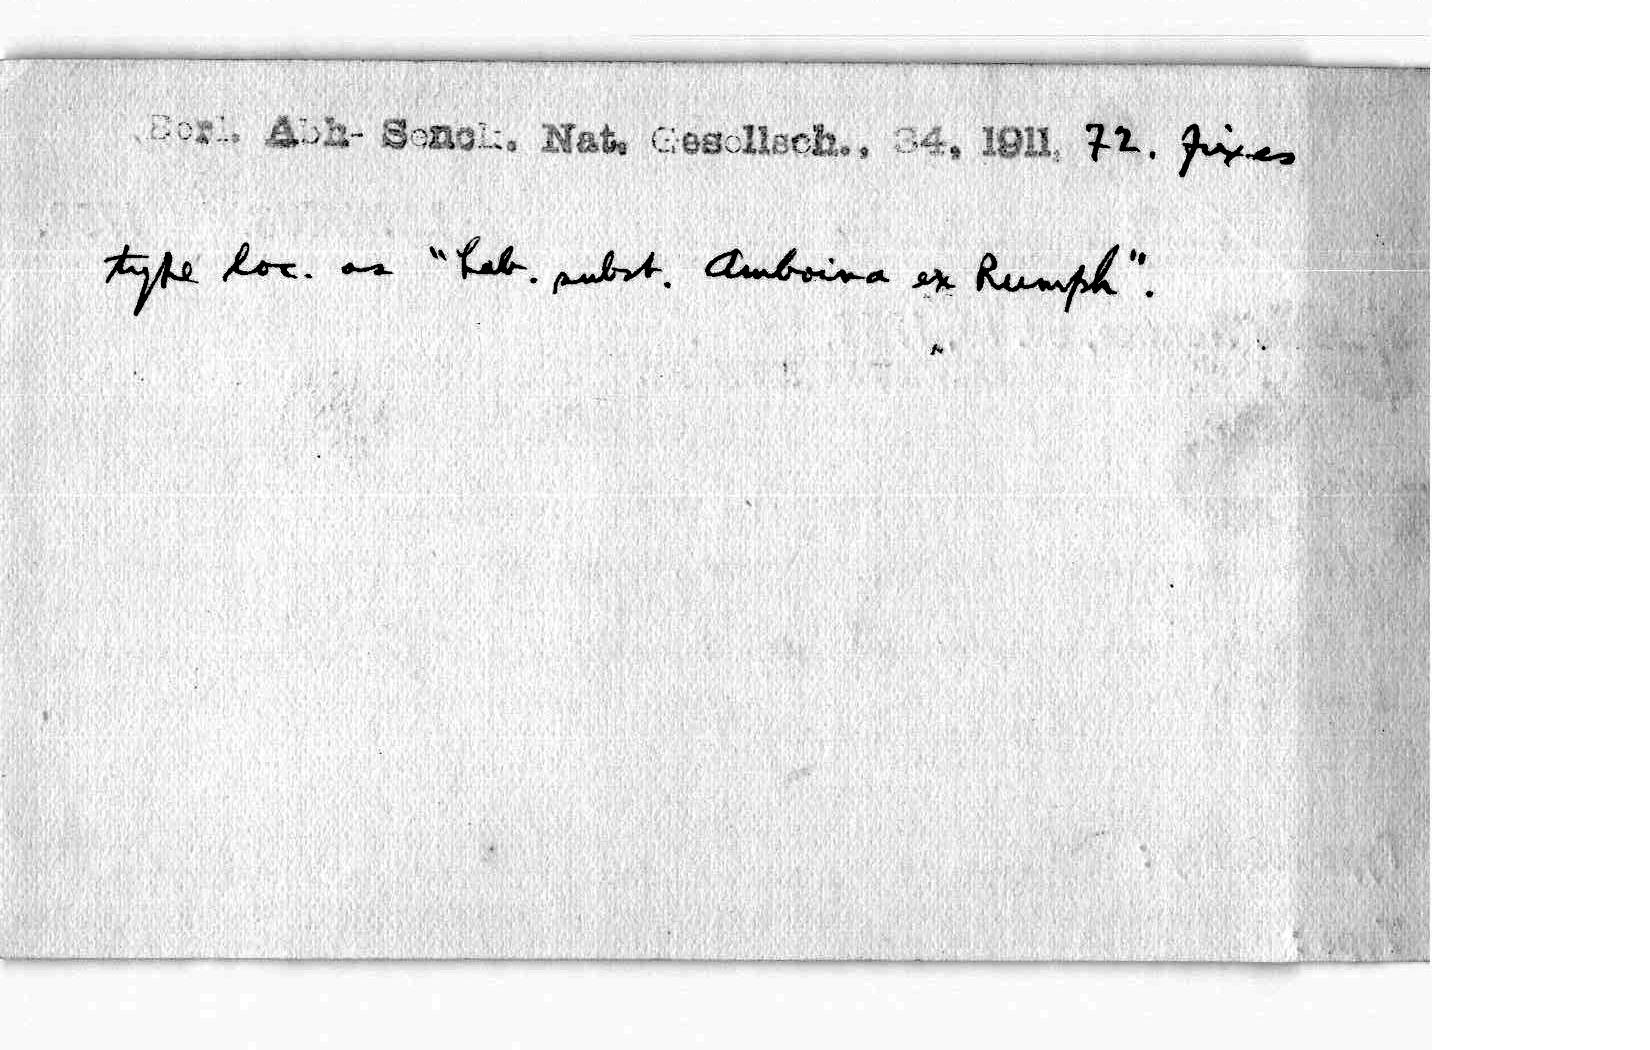 Berl. Abh- Senck. Nat. Gesellsch., 34, 1911, 72. fixes
type loc. as "hab. subst. Amboina ex Rumph".